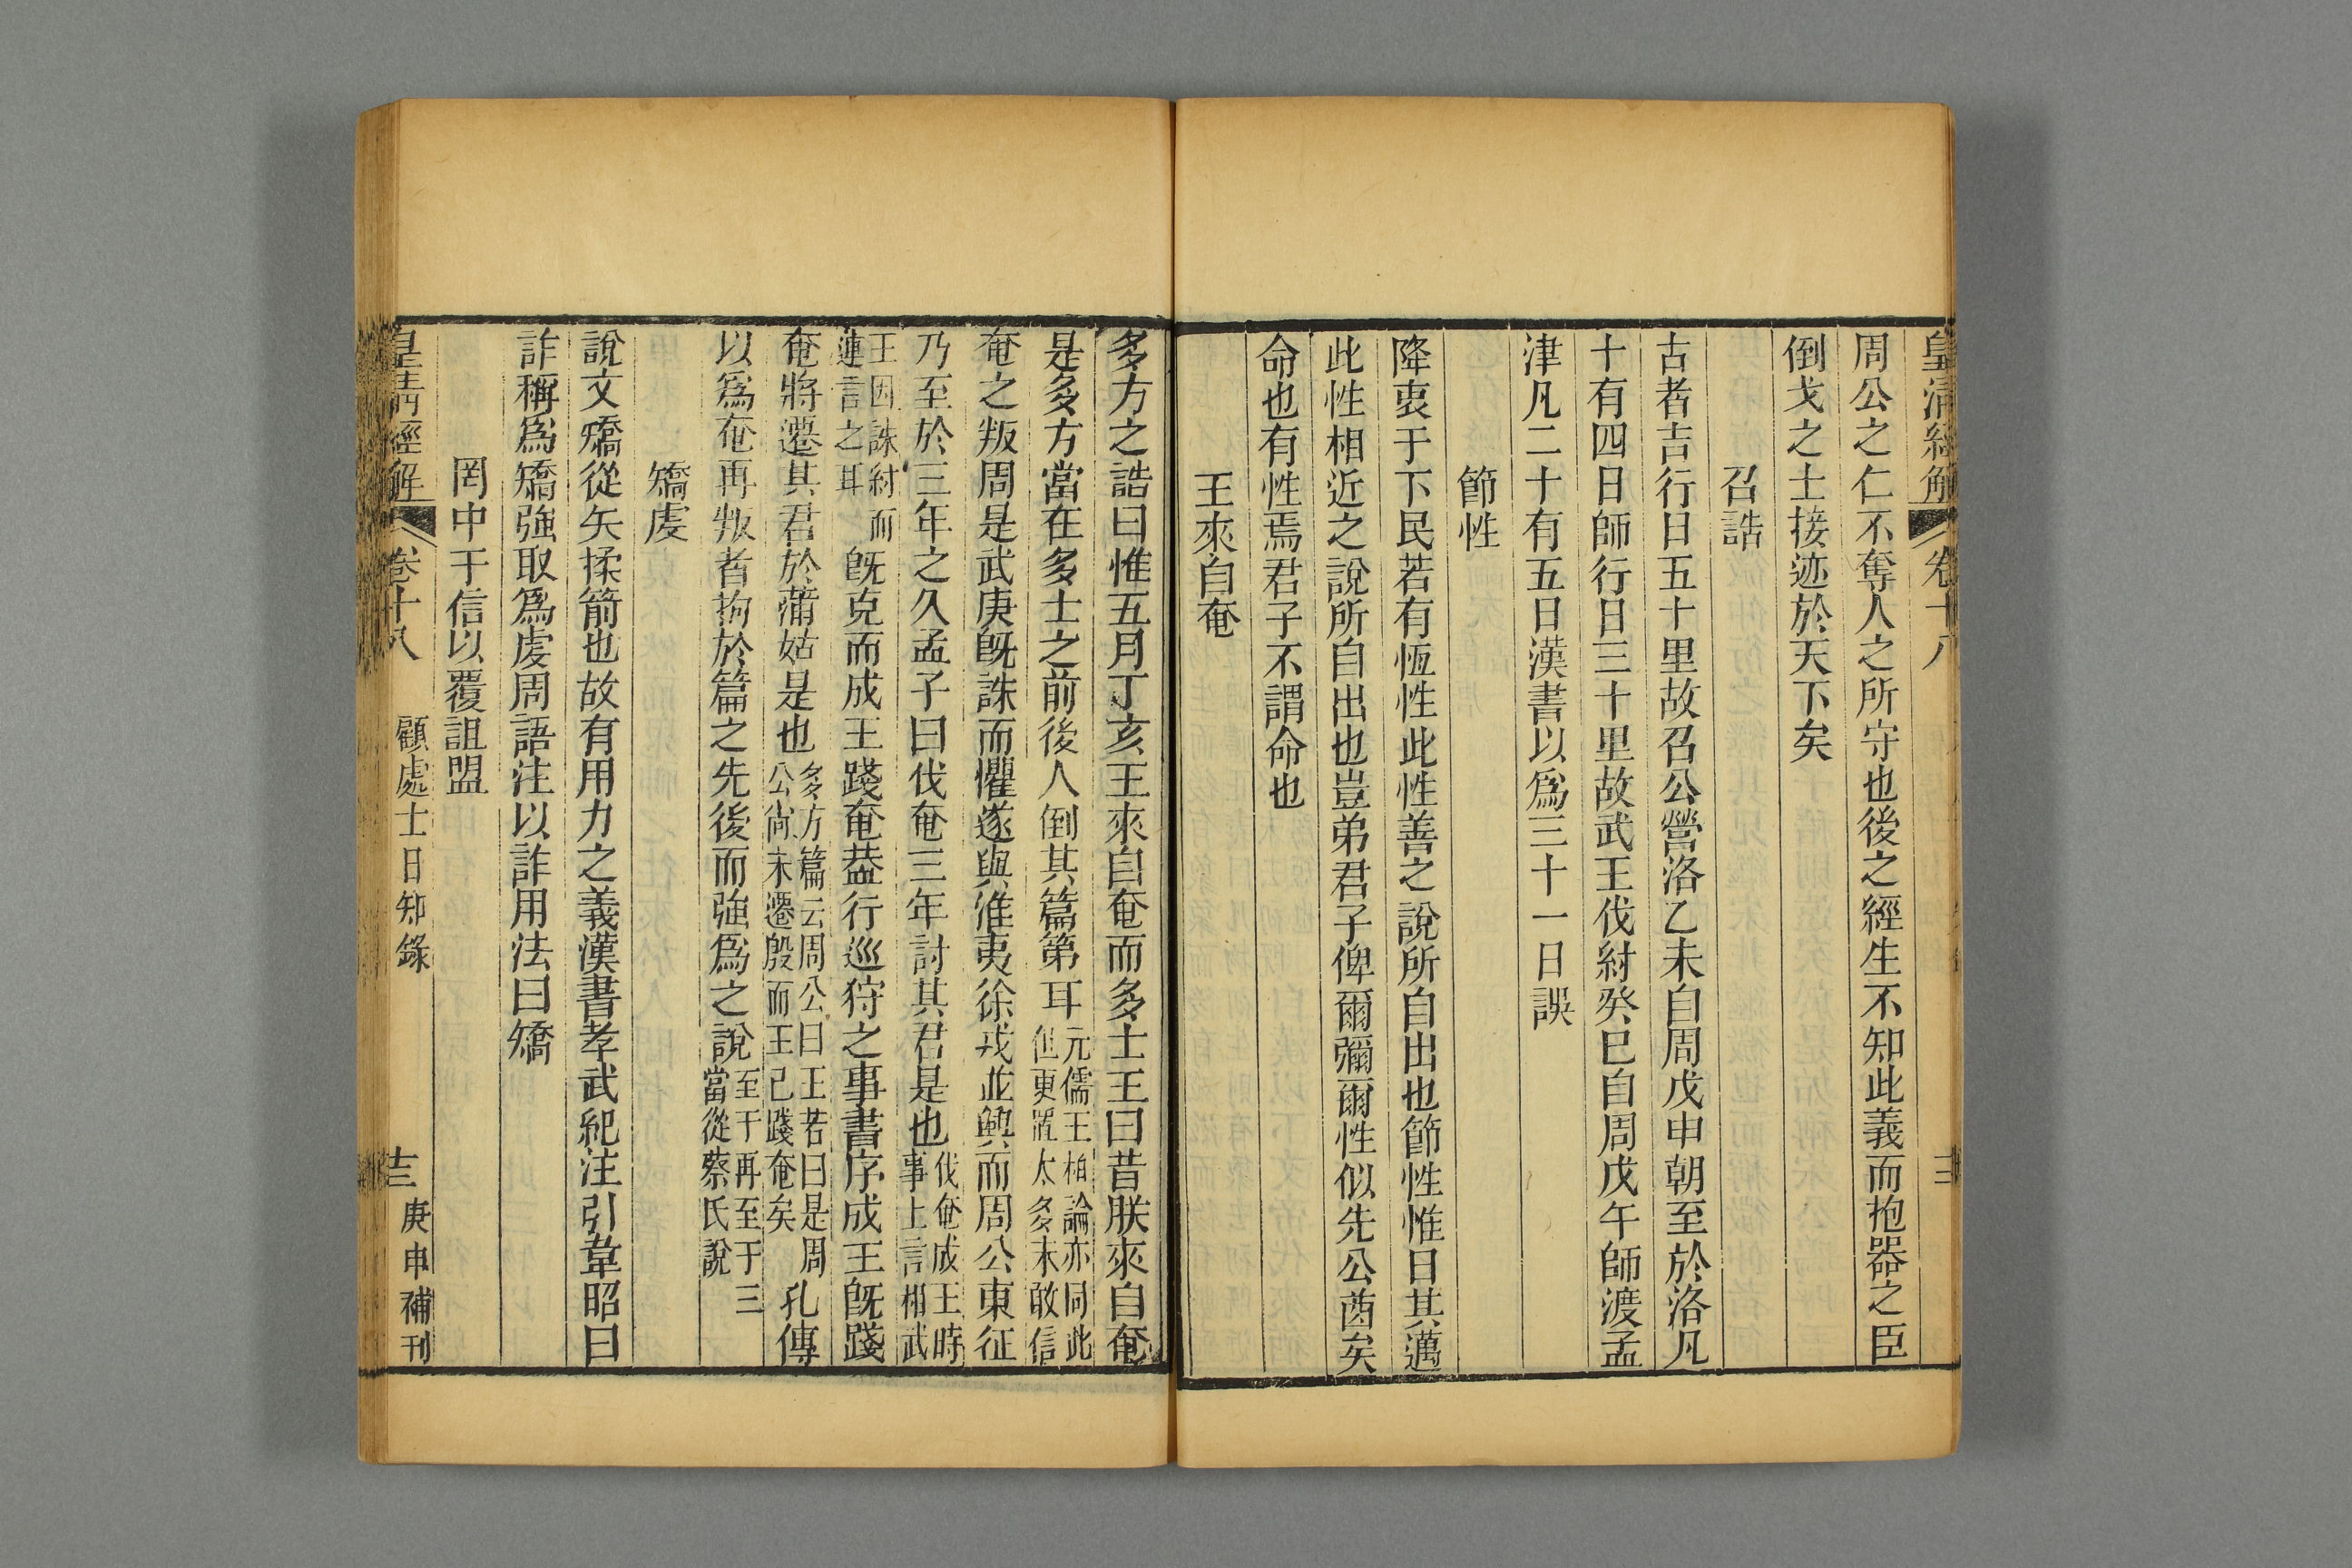 皇清經解
卷十八
周公之仁不奪人之所守也後之經生不知此義而抱器之臣
倒戈之士接迹於天下矣
召誥
古者吉行日五十里故召公營洛乙未自周戊申朝至於洛凡
十有四日師行日三十里故武王伐紂癸巳自周戊午師渡孟
津凡二十有五日漢書以爲三十一日誤
節性
降衷于下民若有恆性此性善之說所自出也節性惟日其邁
此性相近之說所自出也豈弟君子俾爾彌爾性似先公酋矣
命也有性焉君子不謂命也
王來自奄
多方之誥曰惟五月丁亥王來自奄而多士王曰昔朕來自奄
是多方當在多士之前後人倒其篇第耳元儒王柏論亦同此但更置太多未敢信
奄之叛周是武庚旣誅而懼遂與淮夷徐戎並興而周公東征
乃至於三年之久孟子曰伐奄三年討其君是也伐奄成王時事上言相武
王因誅紂而連言之耳旣克而成王踐奄葢行巡狩之事書序成王旣踐
奄將遷其君於蒲姑是也多方篇云周公曰王若曰是周公尚未遷殷而王已踐奄矣孔傳
以爲奄再叛者拘於篇之先後而強爲之說至于再至于三當從蔡氏說
矯虔
說文矯從矢揉箭也故有用力之義漢書孝武紀注引韋昭曰
詐稱爲矯強取爲虔周語注以詐用法曰矯
罔中于信以覆詛盟
皇清經解
卷十八
顧處士日知錄
十三
庚申補刊